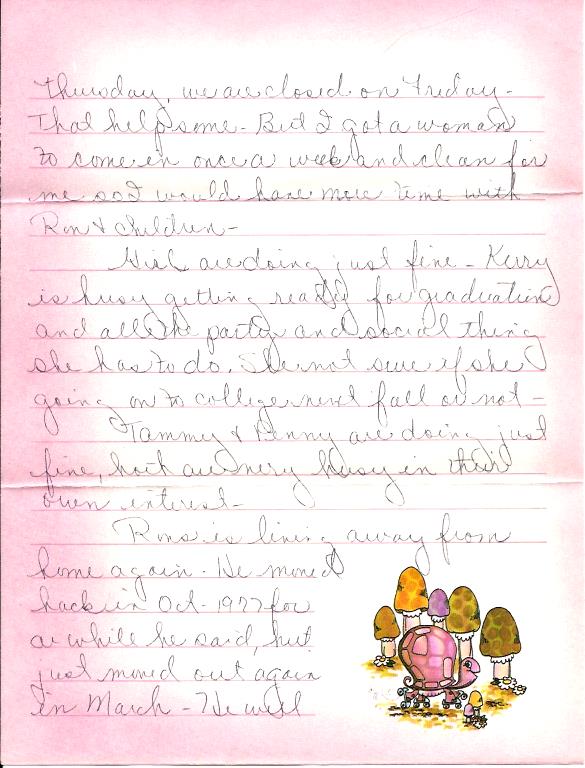 Thursday, we are closed on Friday-
That help some- But I got a woman
to come in once a week and clean for
me so I would have more time with
Ron & children-
Girls are doing just fine- Kerry
is busy getting ready for graduation
and all the party and social thing
she has to do. She not sure if she
going on to college next fall or not-
Tammy & Penny are doing just
fine, both are very busy in their
own interest-
is living away from
home again- He moved
back in Oct- 1977 for
a while he said, but
just moved out again
in March- He will